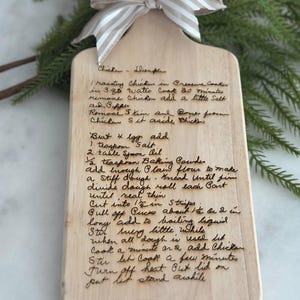 Chicken - Dumpla
1 roasting Chicken in Pressure Cooker
in 3 qt Water Cook 20 minutes
remove Chicken add a little Salt
and Pepper
Remove Skin and Bones from
Chicken Set aside
Beat 4 egg add
1 teaspoon Salt
2 table spoon Oil
½ teaspoon Baking Powder
add enough Plain flour to make
a stiff dough - knead until firm
divide dough roll each Part
until real thin
Cut into ½ in Strips
Pull off Pieces about 1½ to 2 in
long add to boiling liquid
Stir every little while
when all dough is used up
Cook a minute or 2 add Chicken
Stir let Cook a few minutes
Turn off heat Put lid on
pot let stand awhile